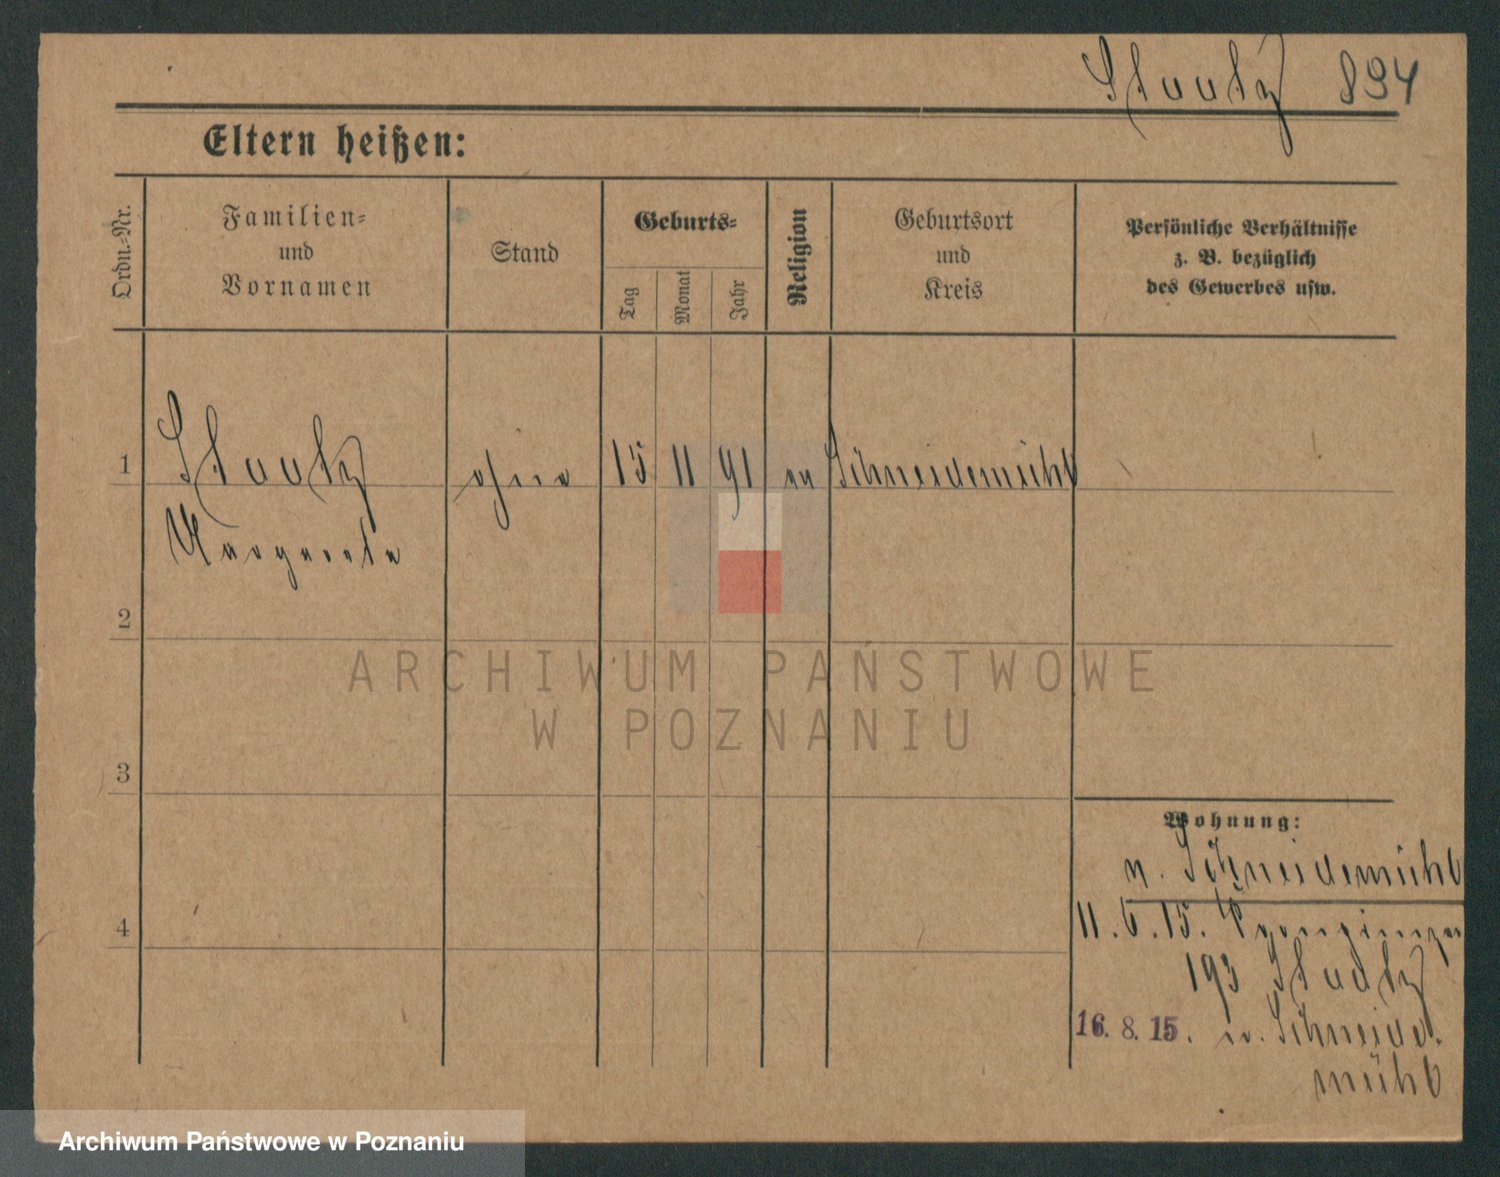 Staatz 894
Eltern heißen:
Ordn.-Nr.
Familien-
und
Vornamen
Stand
Geburts-
Tag
Monat
Jahr
Religion
Geburtsort
und
Kreis
Persönliche Verhältnisse
z. B. bezüglich
des Gewerbes usw.
1
Staatz ohne 15 11 91 ev Schneidemühl
Margarete
2
3
4
ARCHIWUM PAŃSTWOWE
W POZNANIU
Wohnung:
n. Schneidemühl
11.6.15.
193 Staatz
16. 8. 15. n. Schneide-
mühl
Archiwum Państwowe w Poznaniu